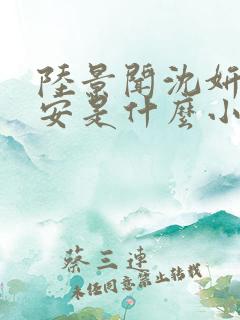 陸景聞沈妍
安是什麼小
蔡三連
未經同意禁止轉載